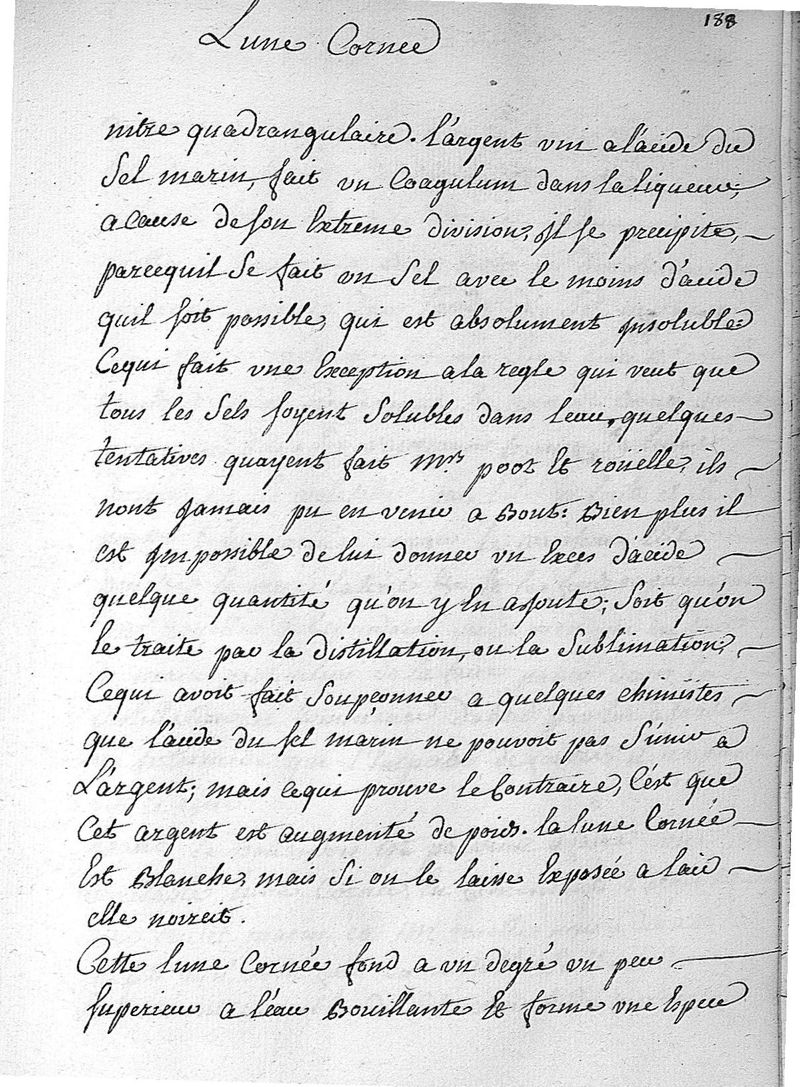 188
Lune Cornee
nitre quadrangulaire. l'argent uni a l'acide du
Sel marin, fait un Coagulum dans laliqueur;
acause deson Extreme division, il se precipite,
parcequil Se fait un Sel avec le moins d'acide
quil soit possible, qui est absolument insoluble
Cequi fait une Exception ala regle qui veut que
tous les Sels soyent Solubles dans leau, quelques
tentatives quayent fait Mrs poot Et roüelle, ils
nont jamais pu en venir a Bout: Bien plus il
est impossible delui donner un Exces d'acide
quelque quantité qu'on y En ajoute; Soit qu'on
le traite par la distillation, ou la Sublimation;
Cequi avoit fait Soupçonner a quelques chimistes
que l'acide du sel marin ne pouvoit pas S'unir a
L'argent; mais cequi prouve le Contraire, C'est que
Cet argent est augmenté de poids. la lune Cornée
Est Blanche, mais Si on le laisse Exposée a lair
elle noircit.
Cette lune Cornée fond a un degré un peu
superieur a l'eau Bouillante Et forme une Espece